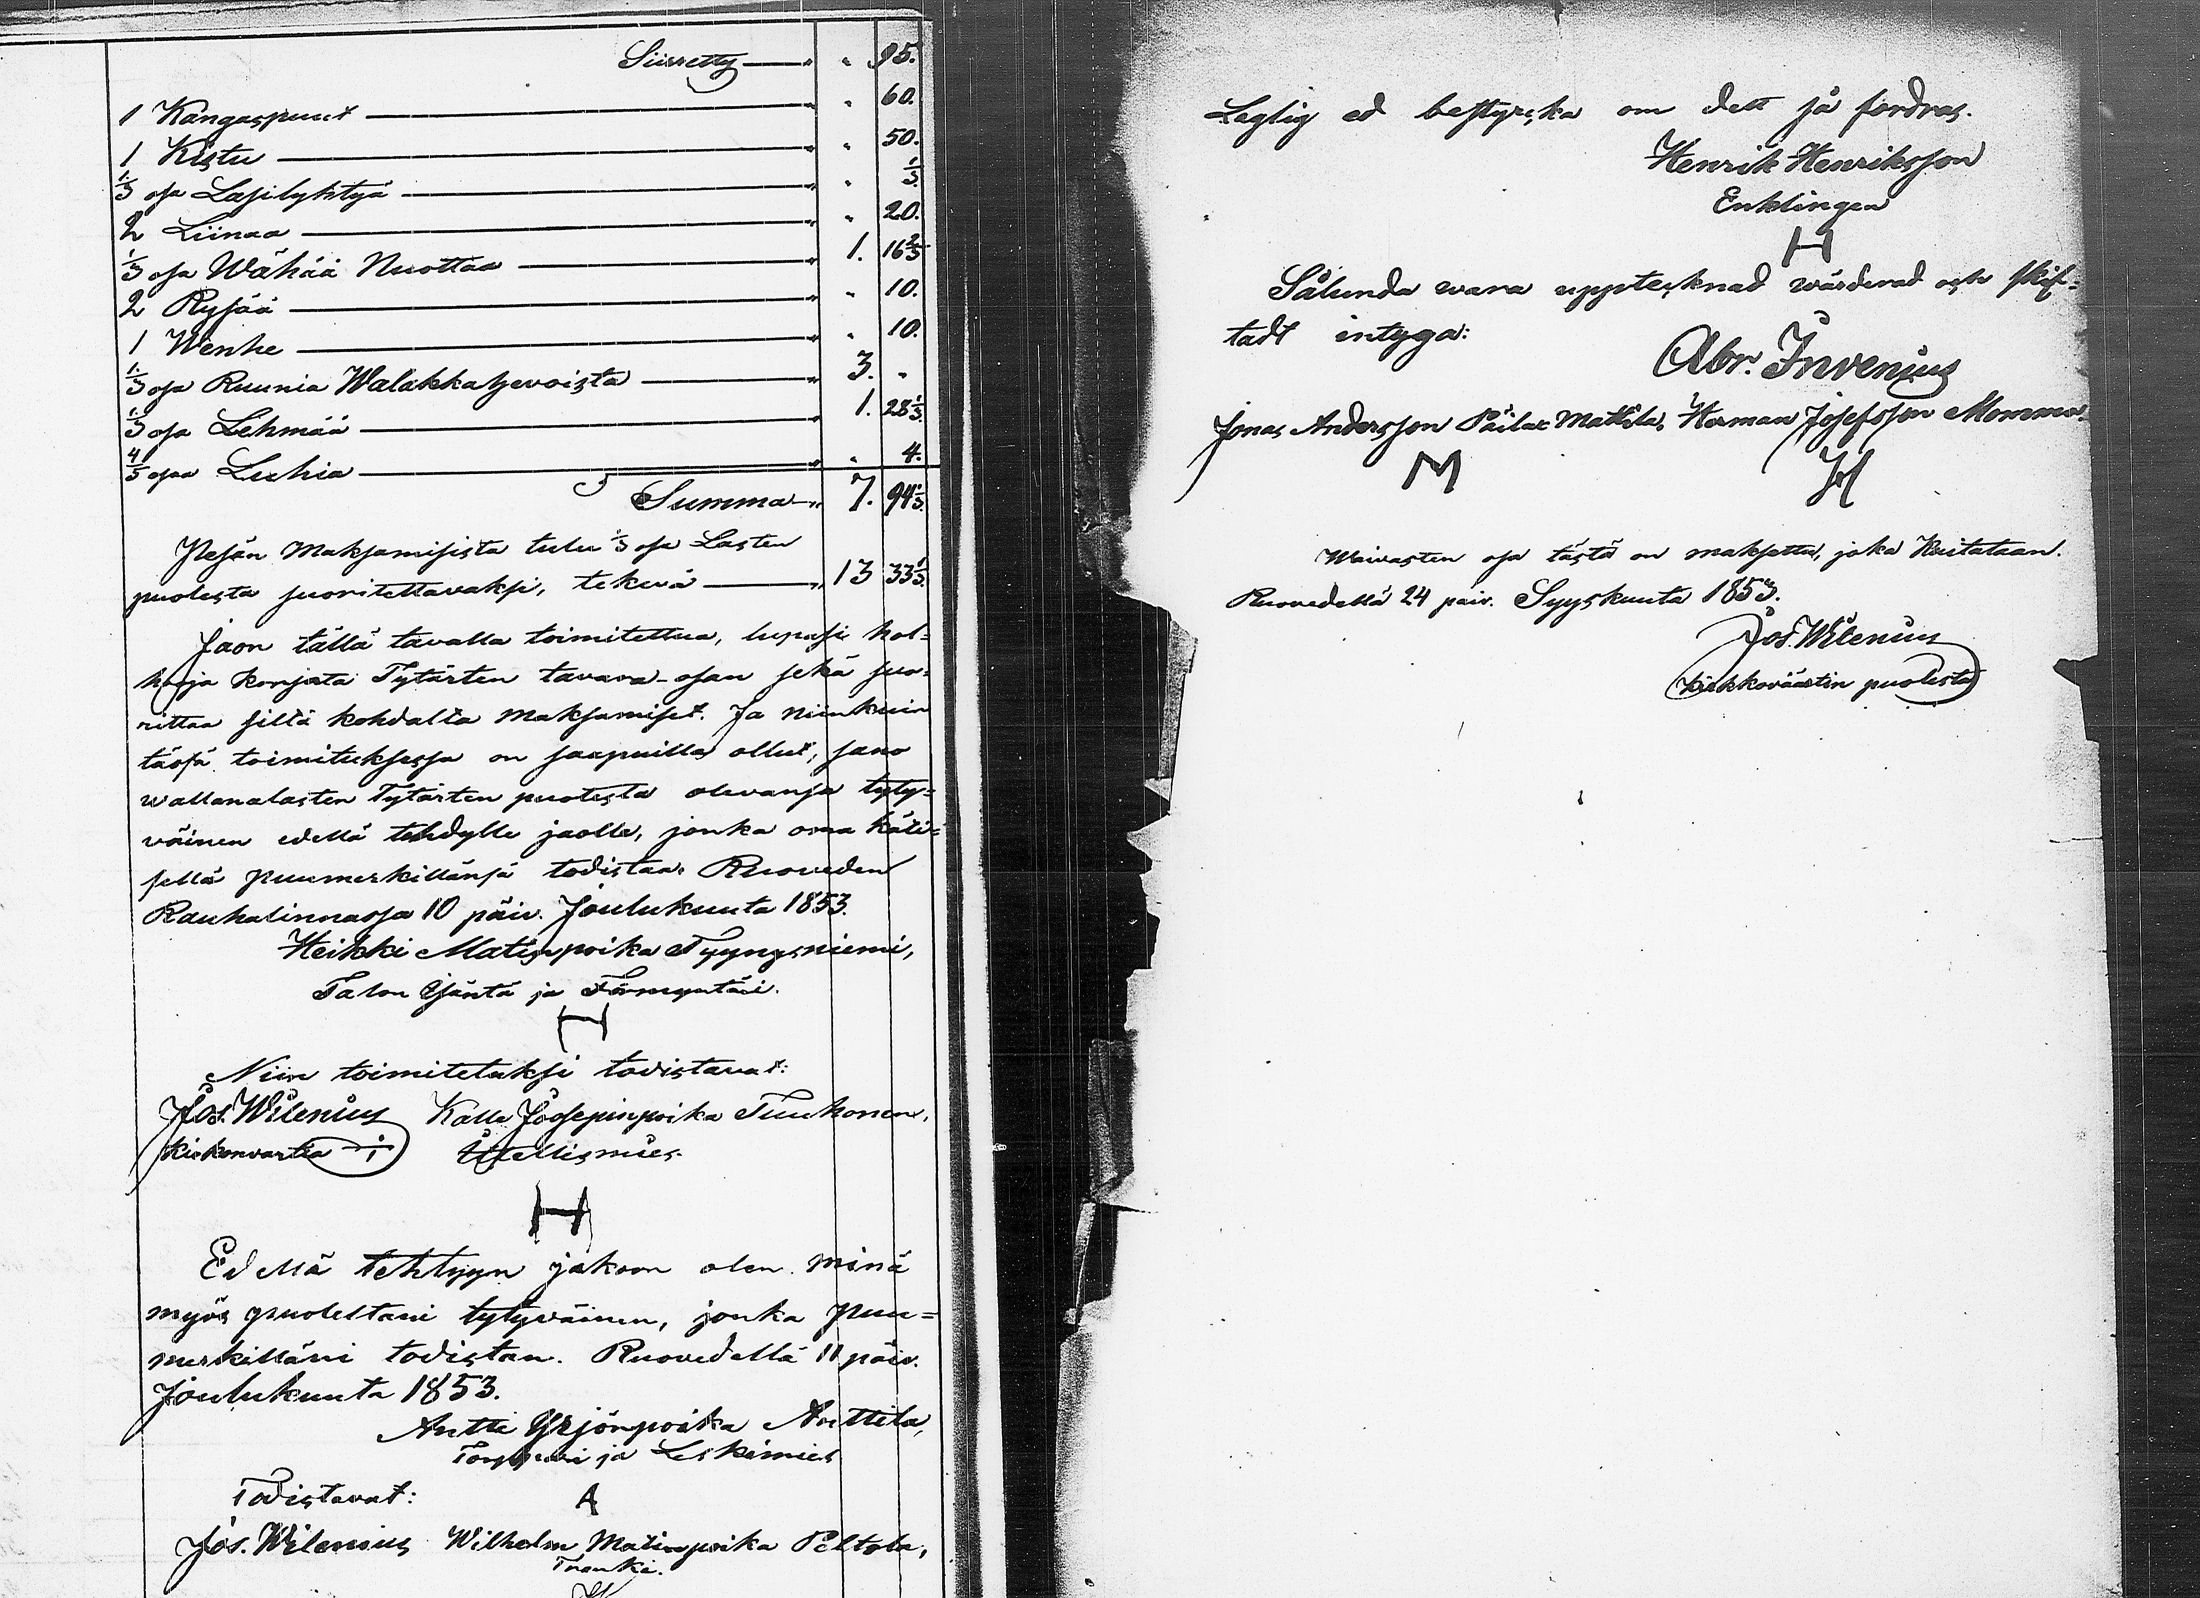 Siirretty — " " 95.
1 Kangaspuut — " 60.
1 Kistu — " 50.
1/3 osa Lasilyhtyä — " 1/3.
2 Liinaa — " 20.
1/3 osa Wähää Nuottaa — " 1. 16 2/3
2 Rysää — " 10.
1 Wenhe — " 10.
1/3 osa Ruunia Walakka hevoista — " 3. "
1/3 osa Lehmää — " 1. 28 1/3.
4/5 osaa Luhia — " " 4.
Summa — " 7. 94 1/3.
Pesän Maksamisista tulu 1/3 osa Lasten
puolesta suoritettavaksi, tekevä — " 13 33 1/3.
Jaon tällä tavalla toimitettua, lupasi hol-
hooja korjata Tytärten tavara-osan sekä suo-
rittaa siltä kohdalta Maksamiset. Ja niinkuin
täsä toimituksessa on saapuilla ollut, sano
wallanalasten Tytärten puolesta olevansa tyty=
väinen edellä tehdylle jaolle, jonka oma käti=
sellä puumerkillänsä todistaa. Ruoveden
Rauhalinnassa 10 päiv. Joulukuuta 1853.
Heikki Matinpoika Tyynysniemi,
Talon Isäntä ja Förmyntäri.
H
Niin toimitetuksi todistavat:
Jos. Wilenius Kalle Joosepinpoika Tuuhonen,
Kirkonvartia Utellismies.
H
Edellä tehtyyn jakoon olen minä
myös puolestani tytyväinen, jonka puu=
merkilläni todistan. Ruovedellä 11 päiv.
Joulukuuta 1853.
Antti Yrjönpoika Anttila,
Torppari ja Leskimies
Todistavat: A
Jos. Wilenius Wilhelm Matinpoika Peltola,
Trenki.
Laglig ed bestyrska om dett så fordras.
Henrik Henriksson
Enklingen
H
Sålunda wara upptecknad wärderad och skif=
tadt intyga:
Abr. Invenius
Jonas Andersson Päilax Mattila, Herman Josefsson Momma.
M JH
Waivasten osa tästä on maksettu, joka Kuitataan.
Ruovedellä 24 päiv. Syyskuuta 1853.
Jos. Wilenius
Kirkkoväärtin puolesta